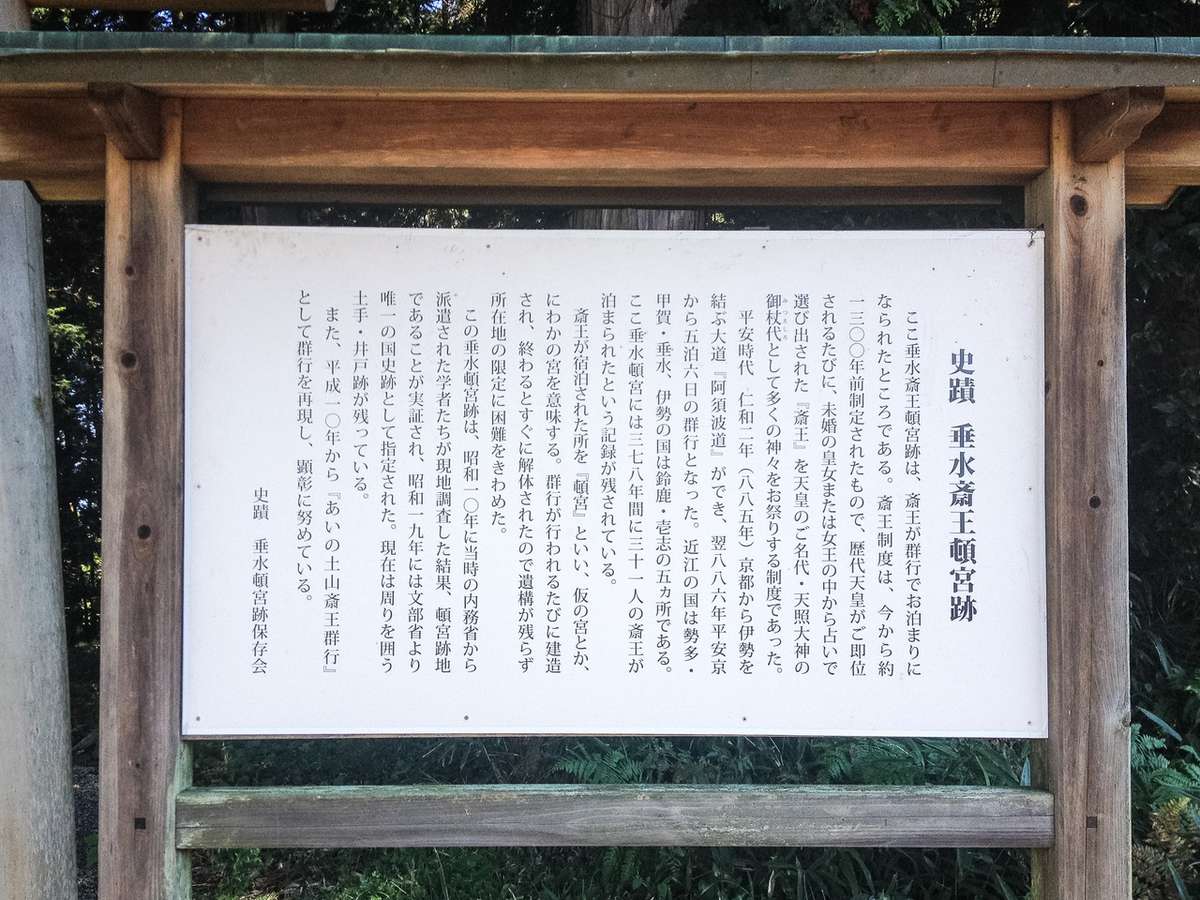 史蹟 垂水斎王頓宮跡
ここ垂水斎王頓宮跡は、斎王が群行でお泊まりに
なられたところである。斎王制度は、今から約
一三〇〇年前制定されたもので、歴代天皇がご即位
されるたびに、未婚の皇女または女王の中から占いで
選び出された『斎王』を天皇のご名代・天照大神の
御杖代として多くの神々をお祭りする制度であった。
みつえしろ
平安時代 仁和二年(八八五年)京都から伊勢を
結ぶ大道『阿須波道』ができ、翌八八六年平安京
から五泊六日の群行となった。近江の国は勢多・
甲賀・垂水、伊勢の国は鈴鹿・壱志の五ヵ所である。
ここ垂水頓宮には三七八年間に三十一人の斎王が
泊まられたという記録が残されている。
斎王が宿泊された所を『頓宮』といい、仮の宮とか、
にわかの宮を意味する。群行が行われるたびに建造
され、終わるとすぐに解体されたので遺構が残らず
所在地の限定に困難をきわめた。
この垂水頓宮跡は、昭和一〇年に当時の内務省から
派遣された学者たちが現地調査した結果、頓宮跡地
であることが実証され、昭和一九年には文部省より
唯一の国史跡として指定された。現在は周りを囲う
土手・井戸跡が残っている。
また、平成一〇年から『あいの土山斎王群行』
として群行を再現し、顕彰に努めている。
史蹟 垂水頓宮跡保存会